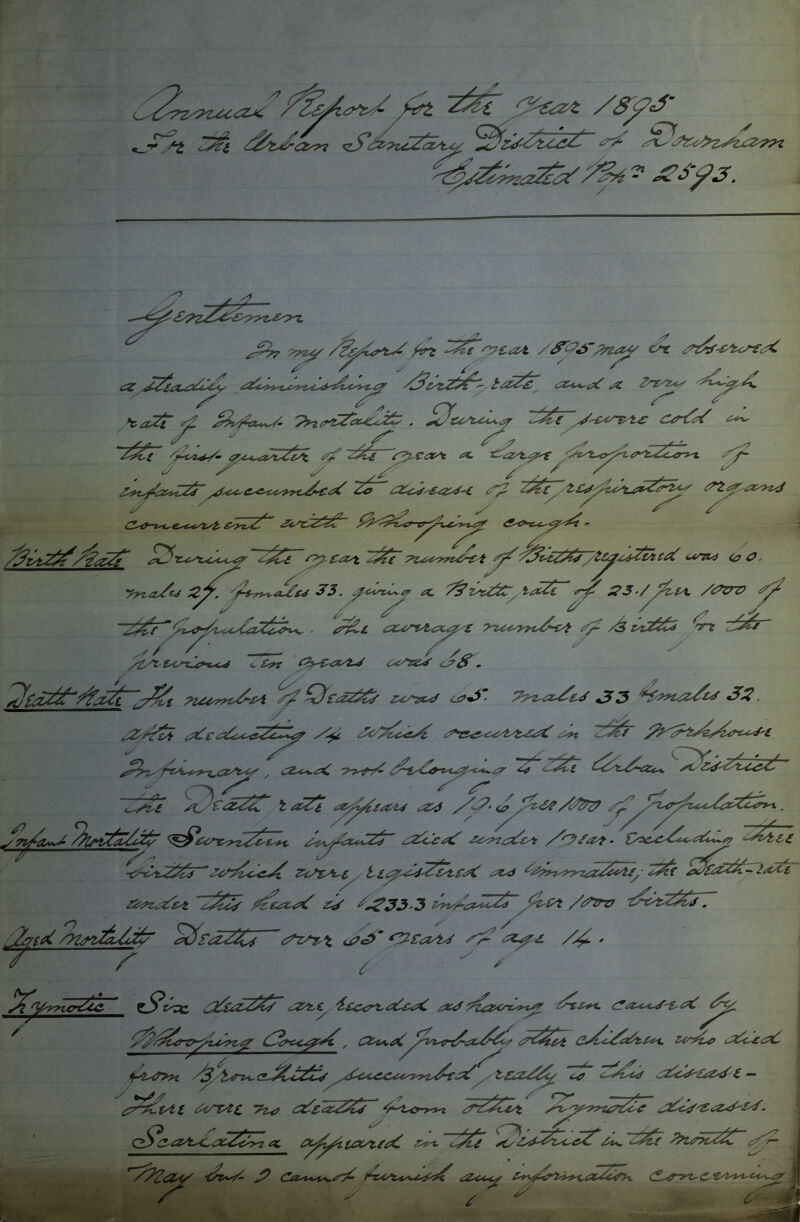 Annual Report for the Year 1895
For the Urban Sanitary District of Downham
Estimated Popn 2593.
Gentlemen
In my Report for the year 1895 may be observed
a steadily diminishing Birth-rate, and a very high
rate of Infant Mortality. During the severe cold in
the first quarter of the year a large proportion of
infants succumbed to disease of the respiratory organs
concurrent with Whooping cough -
Birth Rate During the year the number of Births registered was 60.
males 27. females 33. giving a Birth rate of 23.1 per 1000 of
the population. The average number of Births for the
previous Ten years was 68.
Death Rate The number of Deaths was 65. Males 33 Females 32.
After deducting 14 which occurred in the Workhouse
Infirmary, and not belonging to the Urban District
the Death rate appears as 19.6 per 1000 of population.
Infant Mortality Seventeen infants died under 1 year. Excluding three
births which were registered as immature, the Death-rate
under this head is 233.3 infants per 1000 births.
Aged Mortality Deaths over 65 years of age 14.
Zymotic Six deaths are recorded as having been caused by
Whooping Cough, and probably other children who died
from Bronchitis succumbed really to this disease -
There were no deaths from other Zymotic diseases.
Scarlatina appeared in the District in the month of
May but I cannot furnish any information concerning